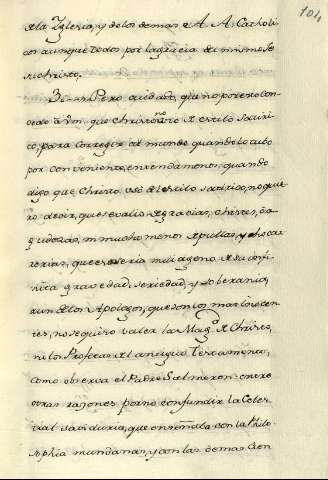 104
de la Iglesia, y de los demas A. A. Catholi
cos aunque todos por la gracia del mismo Je
suchristo.
Pero cuidado, que no porque con
cedo a Vm. que Christo uso el estilo satiri
co, para corregir al mundo quando lo tubo
por conveniente, entendamos, quando
digo que Christo usó el estilo satirico, no quie
ro decir, que se valio de gracias, chistes, ò a
gudezas, ni mucho menos de pullas, y chocar
rerias, que esto seria mui ageno de su infi
nita gravedad, seriedad, y soberania,
aun de los Apologos, que son los mas inocen
tes, no se quiso valer la Mag.d de Christo,
ni los Profetas del antiguo Testamento,
como observa el Padre Salmeron entre
otras razones por no confundir la Celes
tial sabiduria, que enseñaba con la Philo
sophia mundana, y con las demas Cien